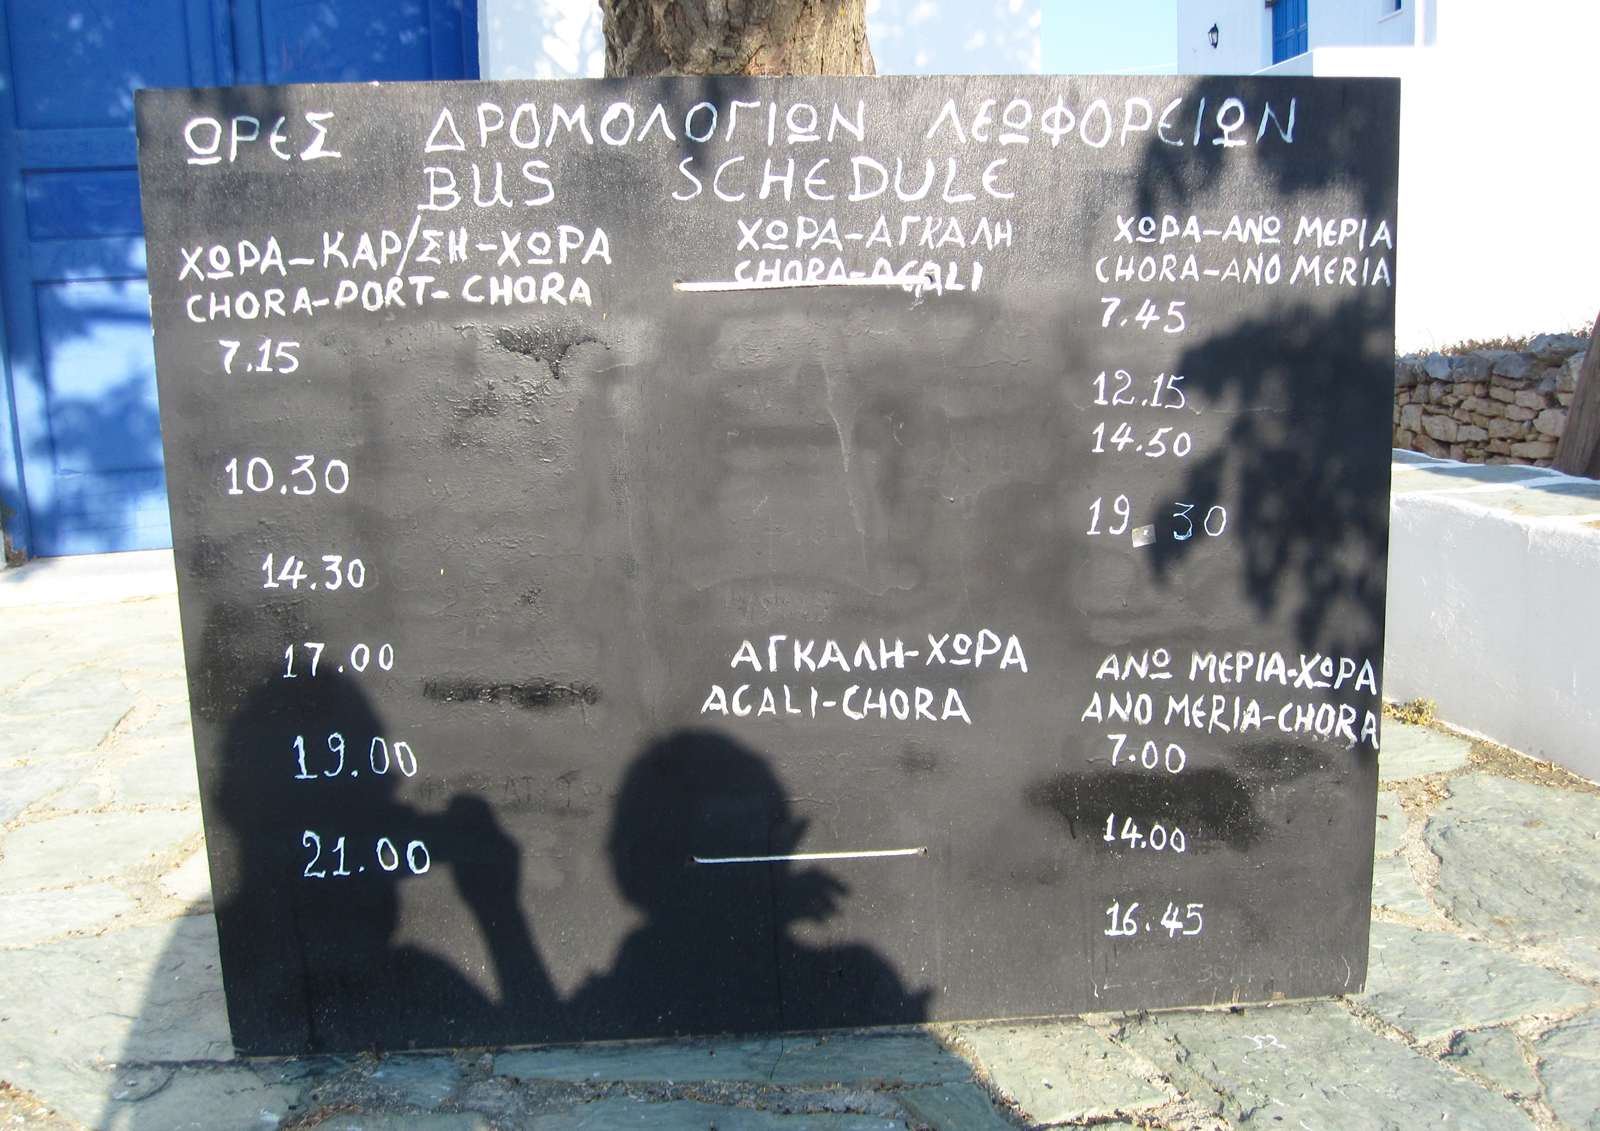 ΩΡΕΣ ΔΡΟΜΟΛΟΓΙΩΝ ΛΕΩΦΟΡΕΙΩΝ
BUS SCHEDULE
ΧΩΡΑ-ΚΑΡ/ΣΗ-ΧΩΡΑ
CHORA-PORT-CHORA
7.15
10.30
14.30
17.00
19.00
21.00
ΧΩΡΑ-ΑΓΚΑΛΗ
CHORA-AGALI
ΑΓΚΑΛΗ-ΧΩΡΑ
AGALI-CHORA
ΧΩΡΑ-ΑΝΩ ΜΕΡΙΑ
CHORA-ANO MERIA
7.45
12.15
14.50
19.30
ΑΝΩ ΜΕΡΙΑ-ΧΩΡΑ
ANO MERIA-CHORA
7.00
14.00
16.45